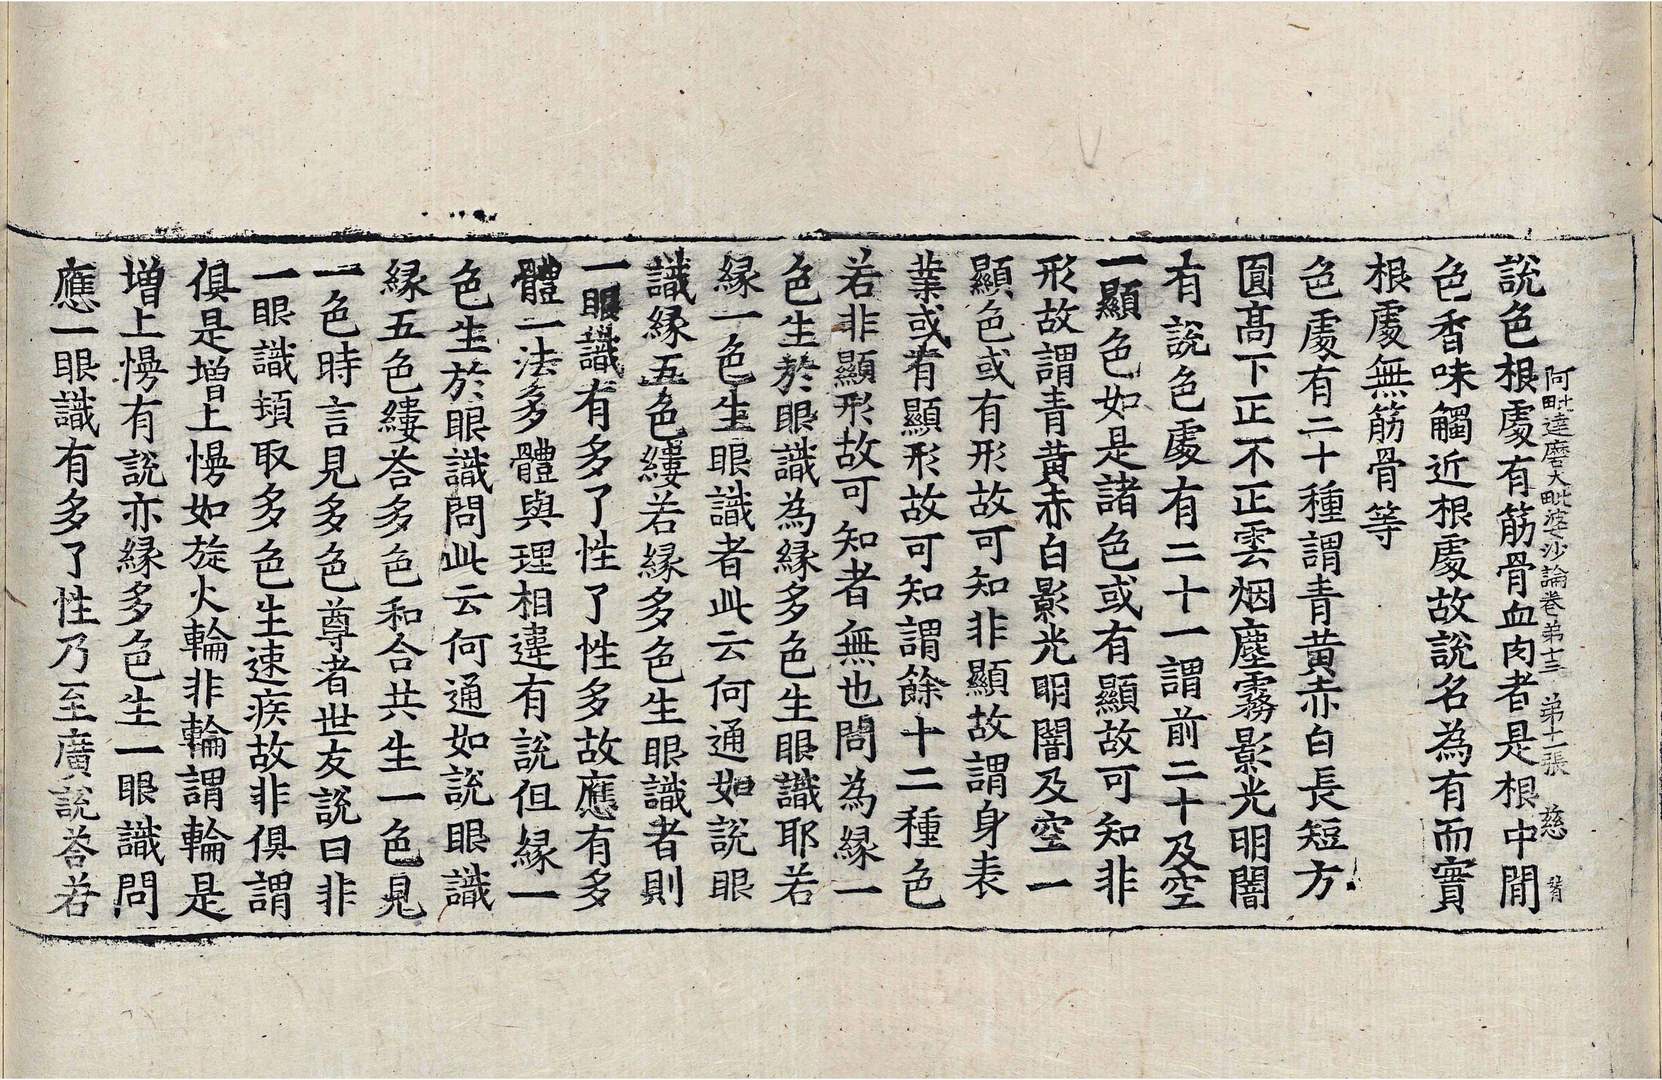 阿毗達磨大毗婆沙論卷第十三 第十二張 慈
說色根處有筋骨血肉者是根中間
色香味觸近根處故說名為有而實
根處無筋骨等
色處有二十種謂青黃赤白長短方
圓高下正不正雲烟塵霧影光明闇
有說色處有二十一謂前二十及空
一顯色如是諸色或有顯故可知非
形故謂青黃赤白影光明闇及空一
顯色或有形故可知非顯故謂身表
業或有顯形故可知謂餘十二種色
若非顯形故可知者無也問為緣一
色生於眼識為緣多色生眼識耶若
緣一色生眼識者此云何通如說眼
識緣五色縷若緣多色生眼識者則
一眼識有多了性了性多故應有多
體一法多體與理相違有說但緣一
色生於眼識問此云何通如說眼識
緣五色縷荅多色和合共生一色見
一色時言見多色尊者世友說曰非
一眼識頓取多色生速疾故非俱謂
俱是增上慢如旋火輪非輪謂輪是
增上慢有說亦緣多色生一眼識問
應一眼識有多了性乃至廣說荅若